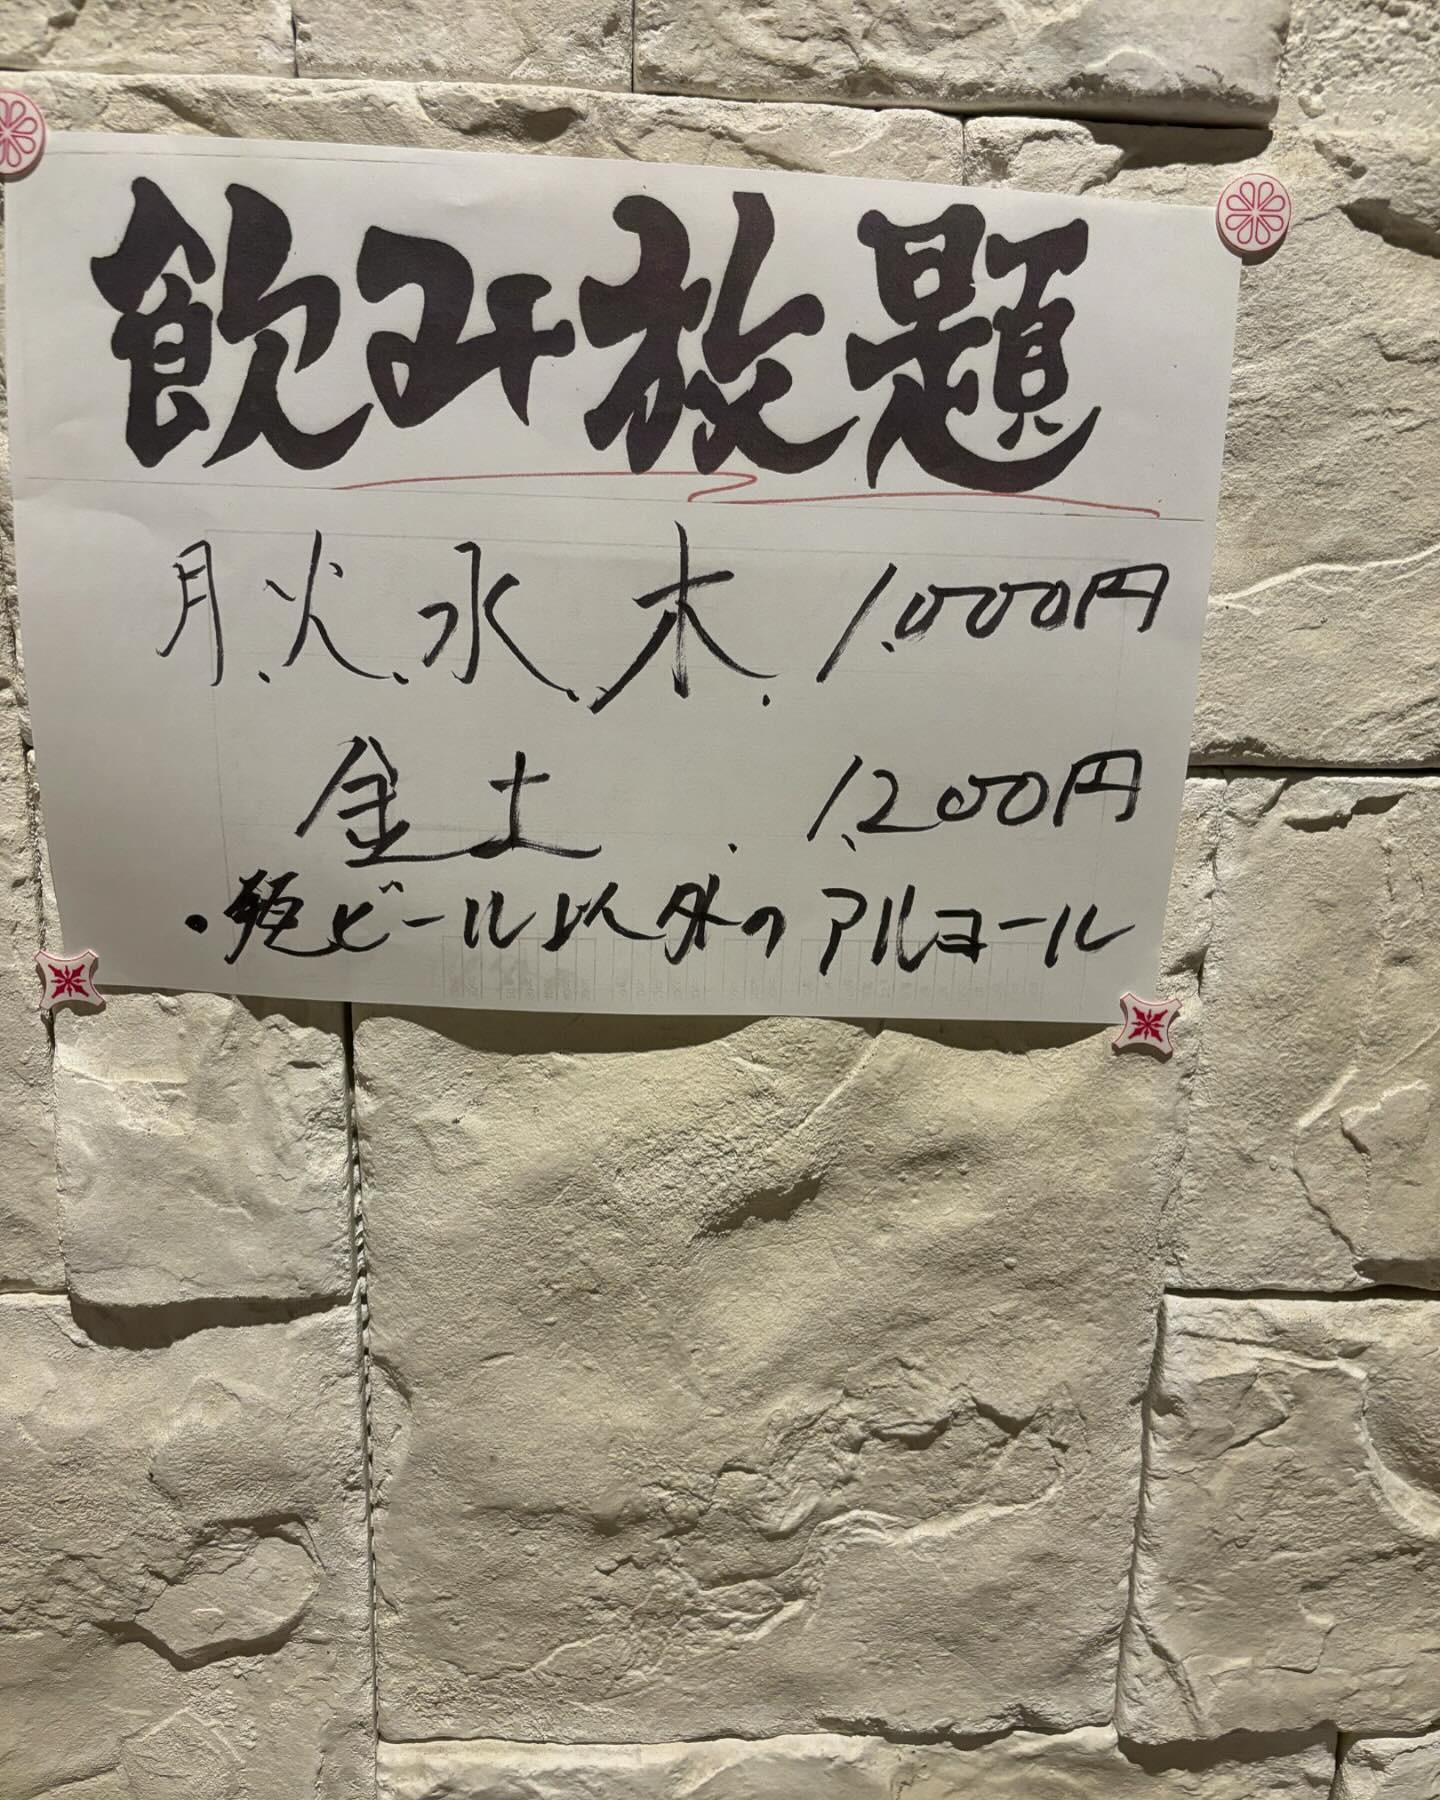 飲み放題
月、火、水、木、1,000円
金土、1,200円
・瓶ビール以外のアルコール